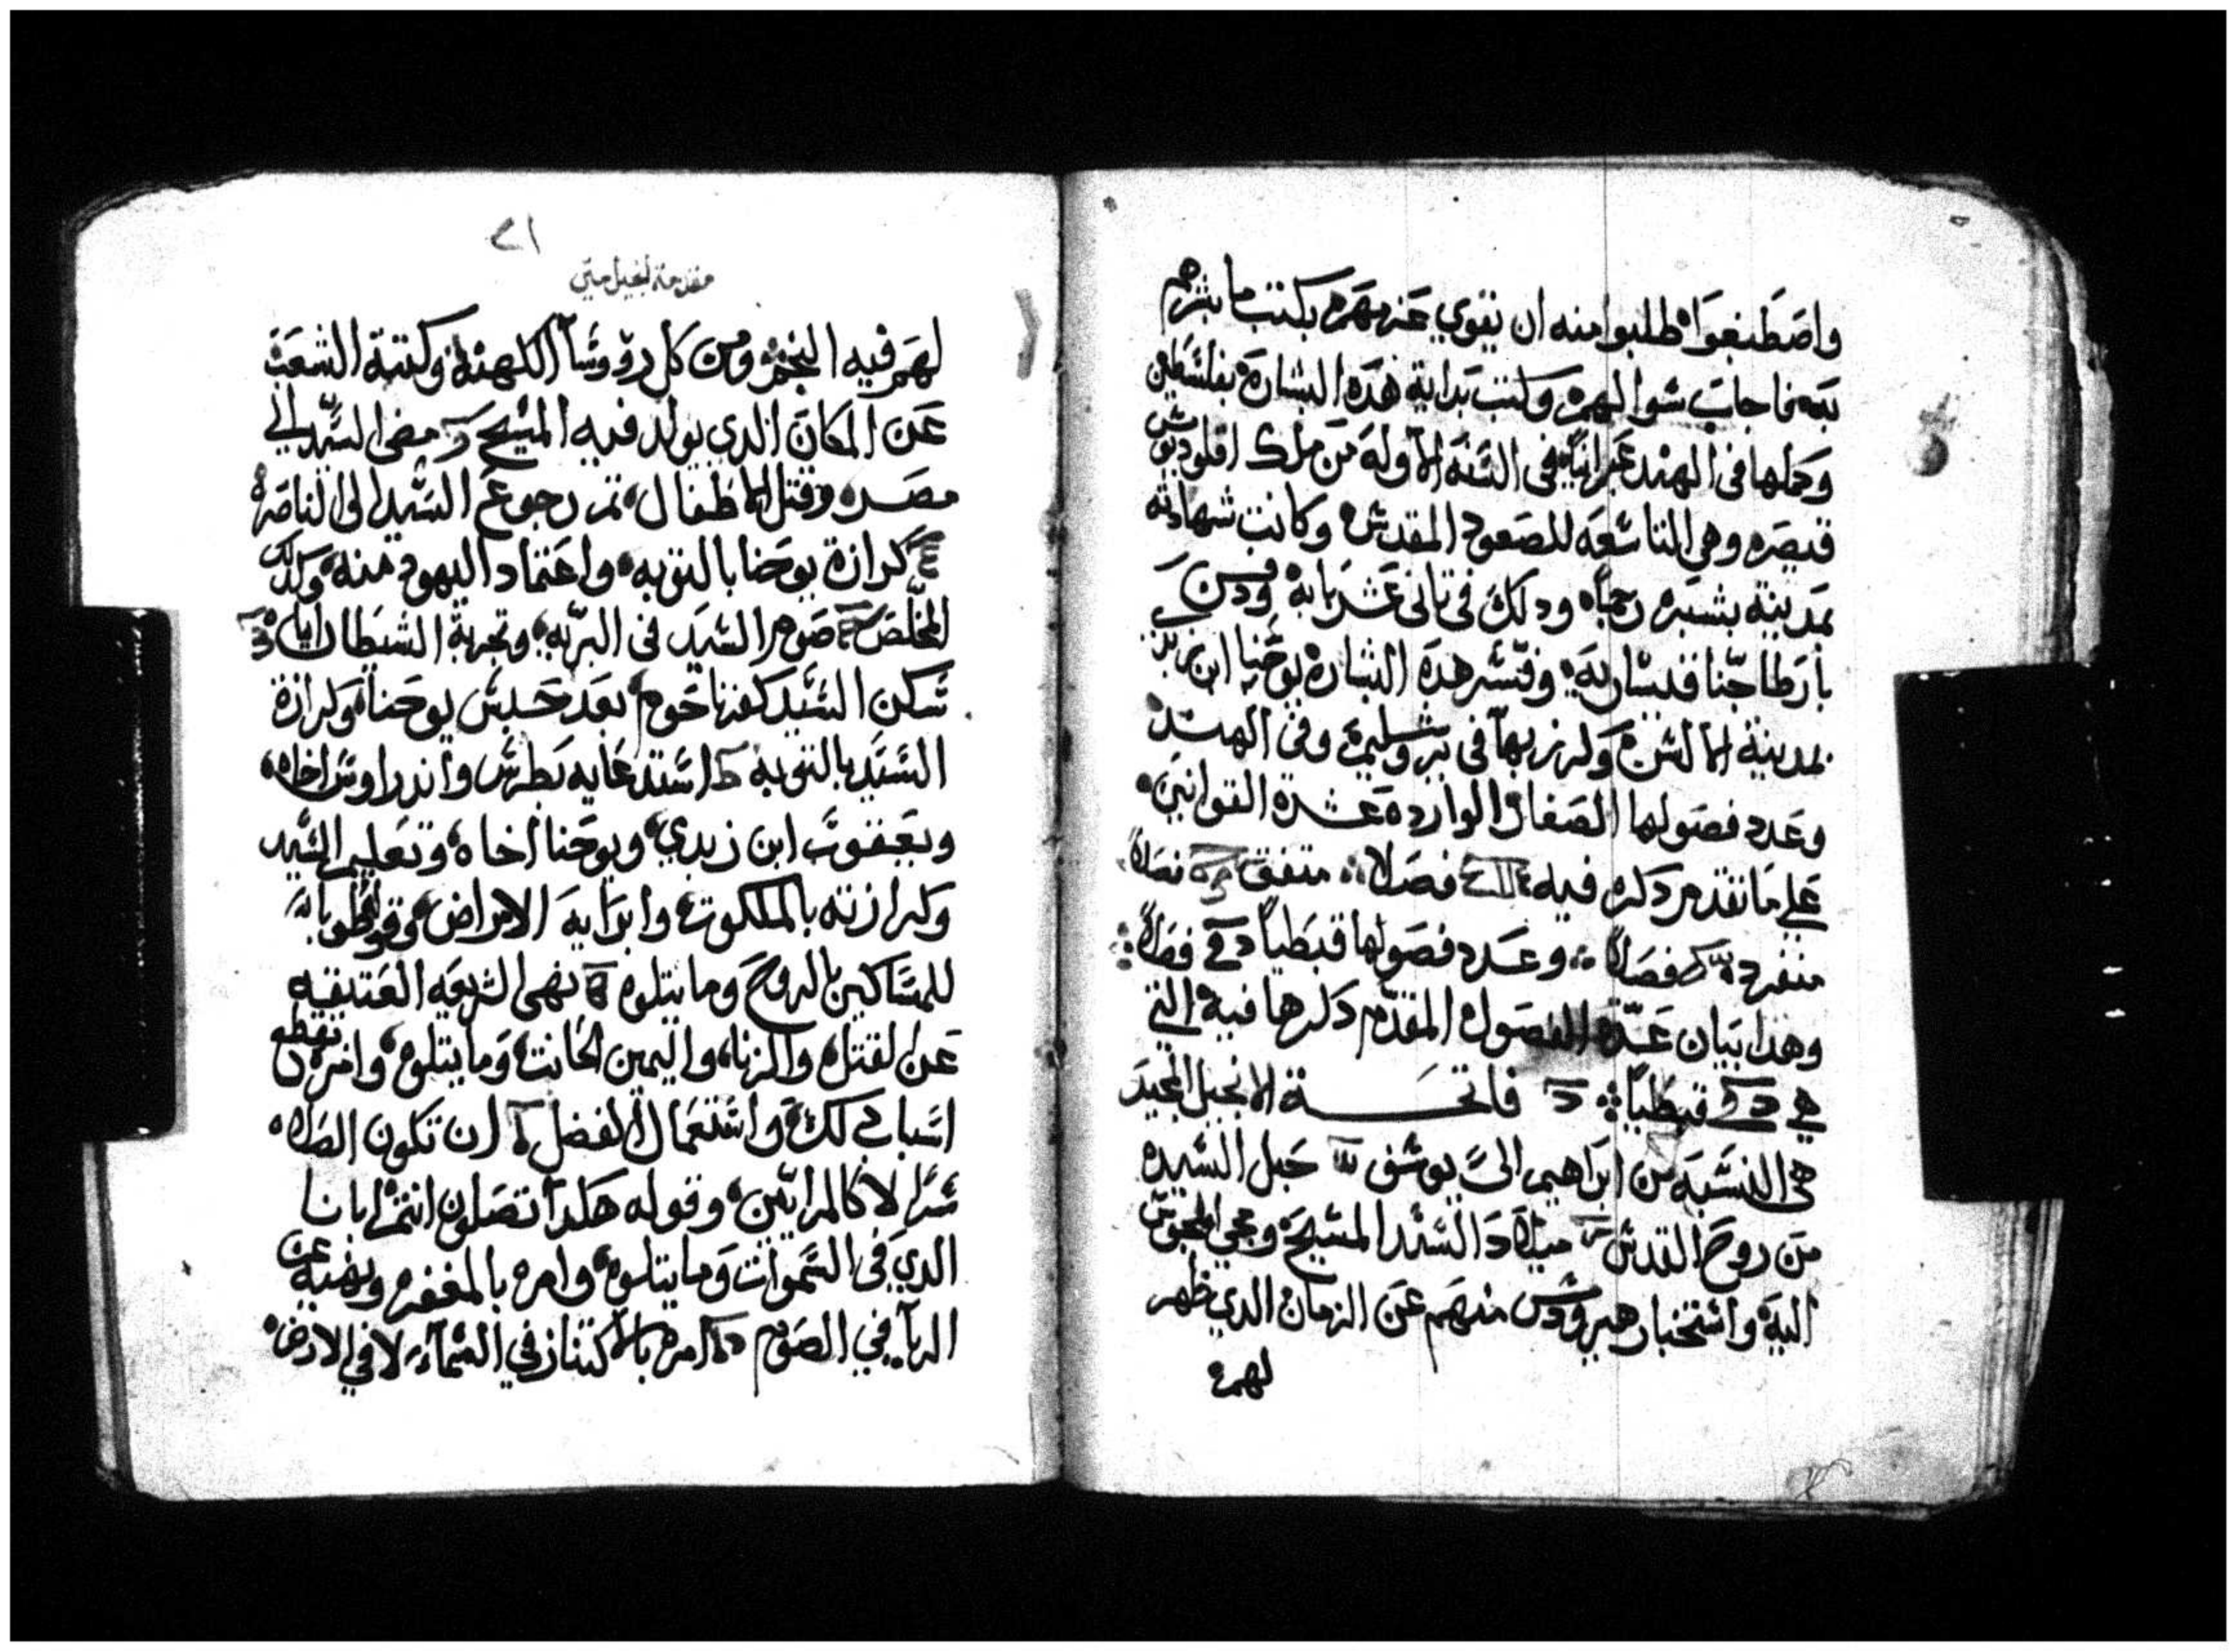 واصطنعوا طلبوا منه ان يقوي عزمهم بكتب ما بشرهم
به فاجاب سوالهم وكتب بداية هده البشارة بفلسطين
وكملها في الهند عبرانيا في السنه الاوله من ملك اقلوديوش
قيصر وهي التاسعه للصعود المقدس وكانت شهادته
بمدينة بشبره رجما ودلك في تاني عشر بابه ودفن
بارطاجنا قيسارية وفسر هده البشارة يوحنا ابن زبدي
بمدينة وكرز بها في يروشليم وفي الهند
وعدد فصولها الصغار الوارده عشرة القوانين
علي ما تقدم دكره فيه فصلا متفق فصلا
منفرد فصلا وعدد فصولها قبطيا فصلا
وهدا بيان عدة الفصول المقدم دكرها فيه التي
هي قبطيا فاتحة الانجيل المجيد
هي النسبه من ابراهيم الي يوسف حبل السيده
من روح القدس ميلاد السيد المسيح ومجي المجوس
اليه واستخبار هيرودس منهم عن الزمان الدي ظهر
لهم
٢١
مقدمة انجيل متي
لهم فيه النجم ومن كل روسآ الكهنه وكتبة الشعب
عن المكان الدي يولد فيه المسيح مضي السيد الي
مصر وقتل الاطفال تم رجوع السيد الي الناصره
كرازة يوحنا بالتوبه واعتماد اليهود منه وكدلك
المخلص صوم السيد في البريه وتجربة الشيطان اياه
سكن السيد كفرناحوم بعد حبس يوحنا وكرازة
السيد بالتوبه استدعايه بطرس واندراوس اخاه
ويعقوب ابن زبدي ويوحنا اخاه وتعليم السيد
وكرازته بالملكوت وابرايه الامراض وقوله طوبا
للمساكين بالروح وما يتلوه نهي الشريعه العتيقه
عن القتل والزنا واليمين الحانت وما يتلوه وامره بقطع
اسباب دلك واستعمال الفضل ان تكون الصلاه
سرا لا كالمرايين وقوله هكدا تصلون انتم ابانا
الدي في السموات وما يتلوه وامره بالمغفره ونهيه عن
الريآ في الصوم امره بالاكتناز في السمآء لا في الارض